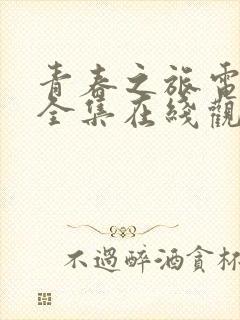 青春之旅電
全集在綫觀
不過醉酒貪杯